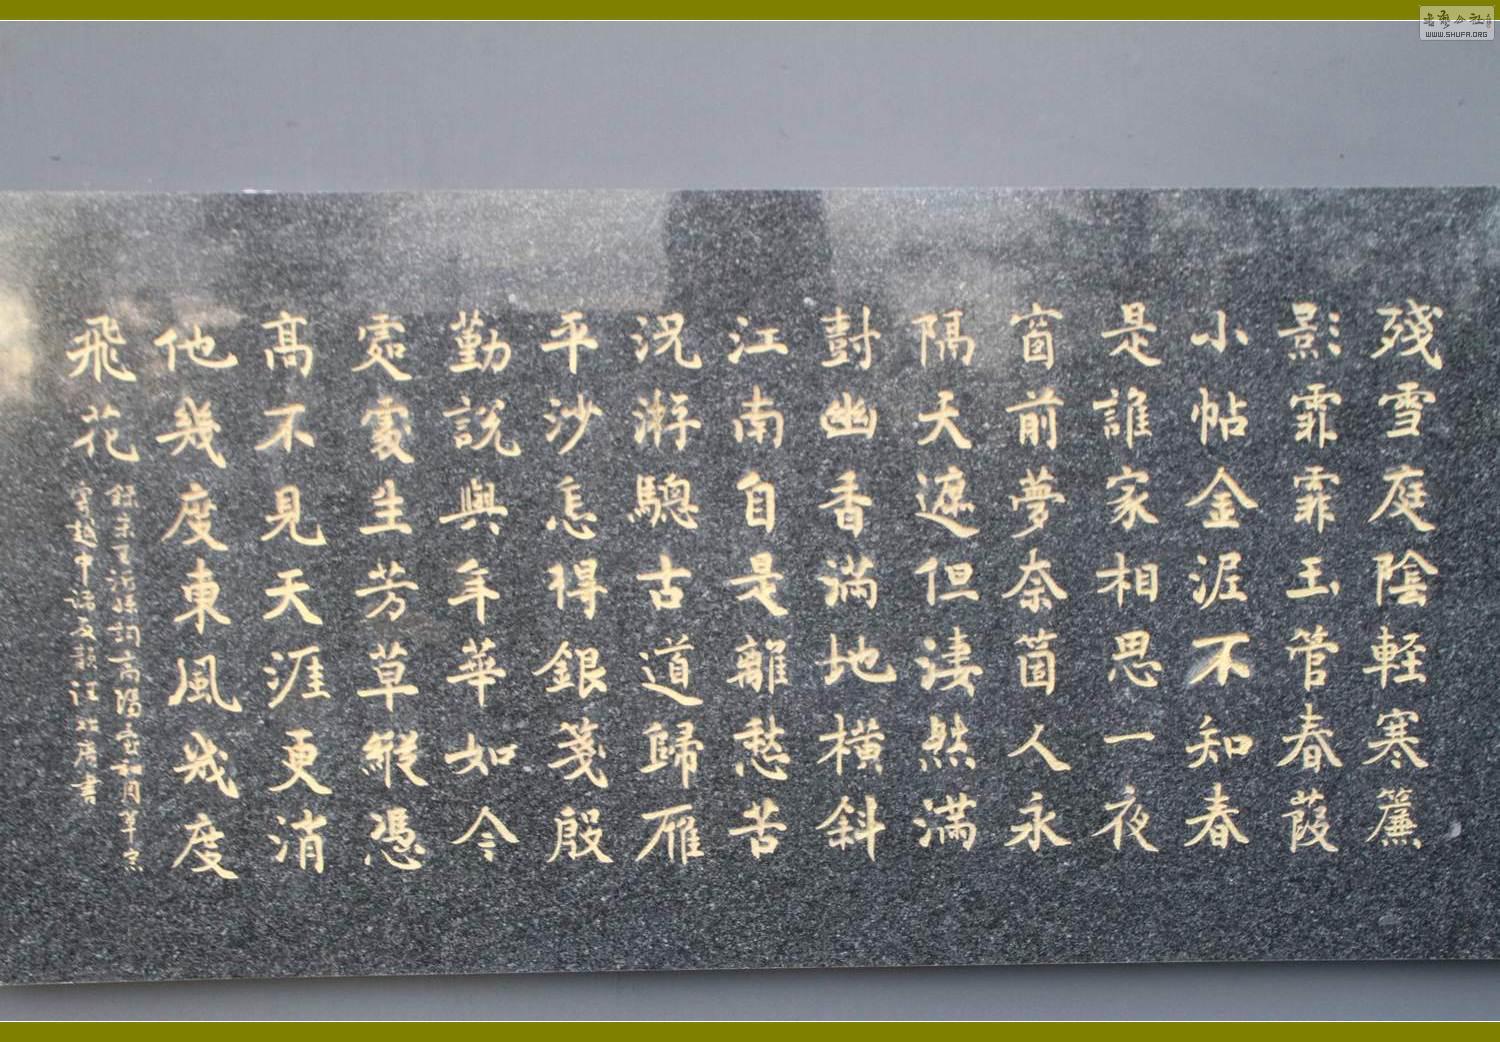 殘雪庭陰輕寒簾
影霏霏玉管春葭
小帖金泥不知春
是誰家相思一夜
窗前夢奈箇人永
隔天遮但淒然滿
尌幽香滿地橫斜
江南自是離愁苦
況游驄古道歸雁
平沙怎得銀箋殷
勤說與年華如今
處處生芳草縱憑
高不見天涯更消
他幾度東風幾度
飛花
錄宋王沂孫詞高陽臺和周草窗
寄越中諸友韻 書
书艺公社
WWW.SHUFA.ORG